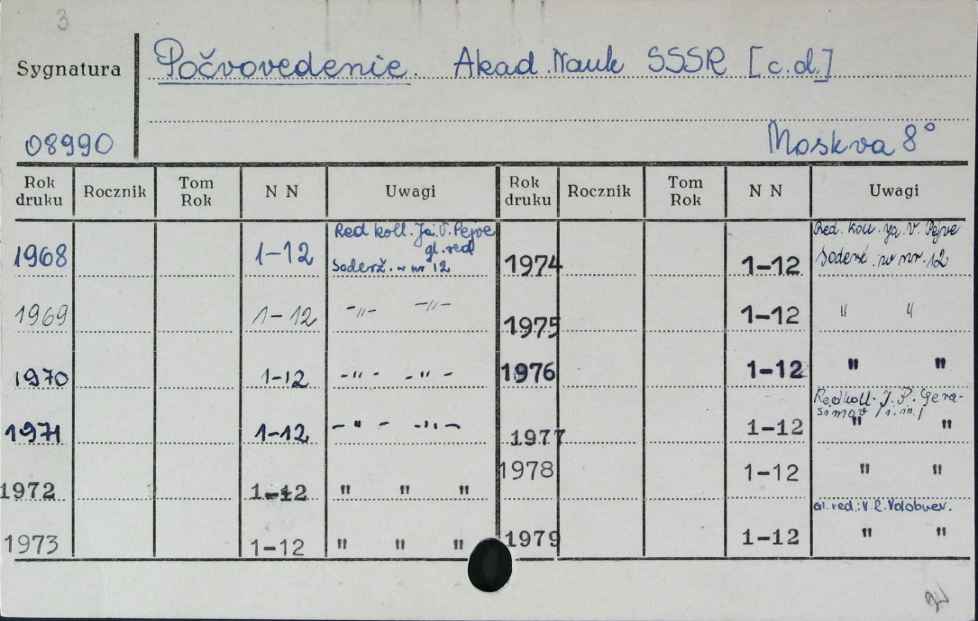 3
Sygnatura
Počvovedenie. Akad. Nauk SSSR [c.d.]
08990
Moskva 8°
Rok druku Rocznik Tom Rok N N Uwagi Rok druku Rocznik Tom Rok N N Uwagi
1968 1-12 Red koll. Ja. V. Pejve gl. red Soderž. w nr 12
1969 1-12 -"- -"-
1970 1-12 -"- -"-
1971 1-12 -"- -"-
1972 1-12 " " "
1973 1-12 " " "
1974 1-12 Red. koll. Ja. V. Pejve Soderž. w nr. 12
1975 1-12 " "
1976 1-12 " "
1977 1-12 Red koll. J. P. Gera-
simov /i in./ " "
1978 1-12 " "
1979 1-12 gl. red.: V. R. Volobuev. " "